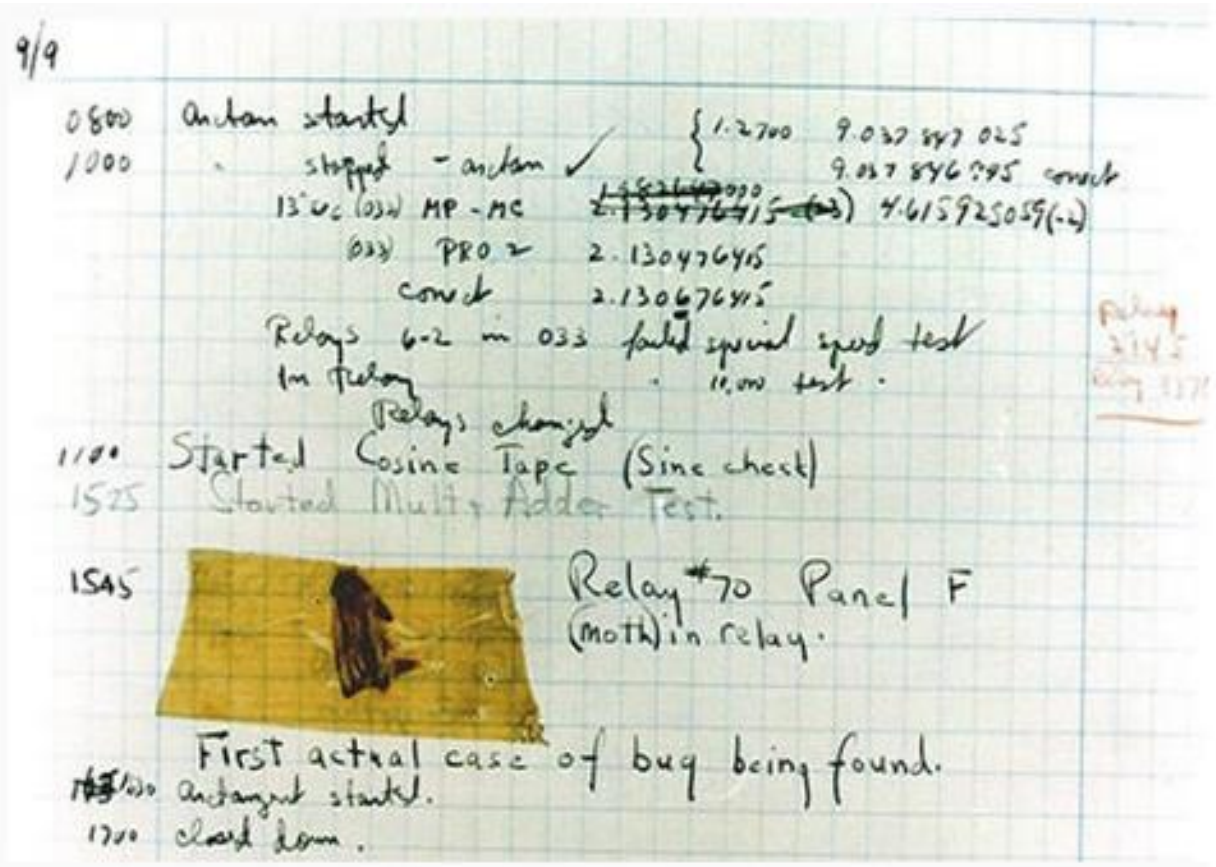 9/9
0800 Antan started { 1.2700 9.037 847 025
1000 " stopped - antan ✓ 9.037 846 795 correct
13"UC (032) MP - MC 2.130476415 (-3) 4.615925059(-2)
(033) PRO 2 2.130476415
correct 2.130676415
Relays 6-2 in 033 failed special speed test
In Relay " 10,000 test .
Relay
2145
Relay 337
Relays changed
1100 Started Cosine Tape (Sine check)
1525 Started Mult + Adder Test.
1545 Relay #70 Panel F
(moth) in relay.
First actual case of bug being found.
1630 Antangent started.
1700 closed down.